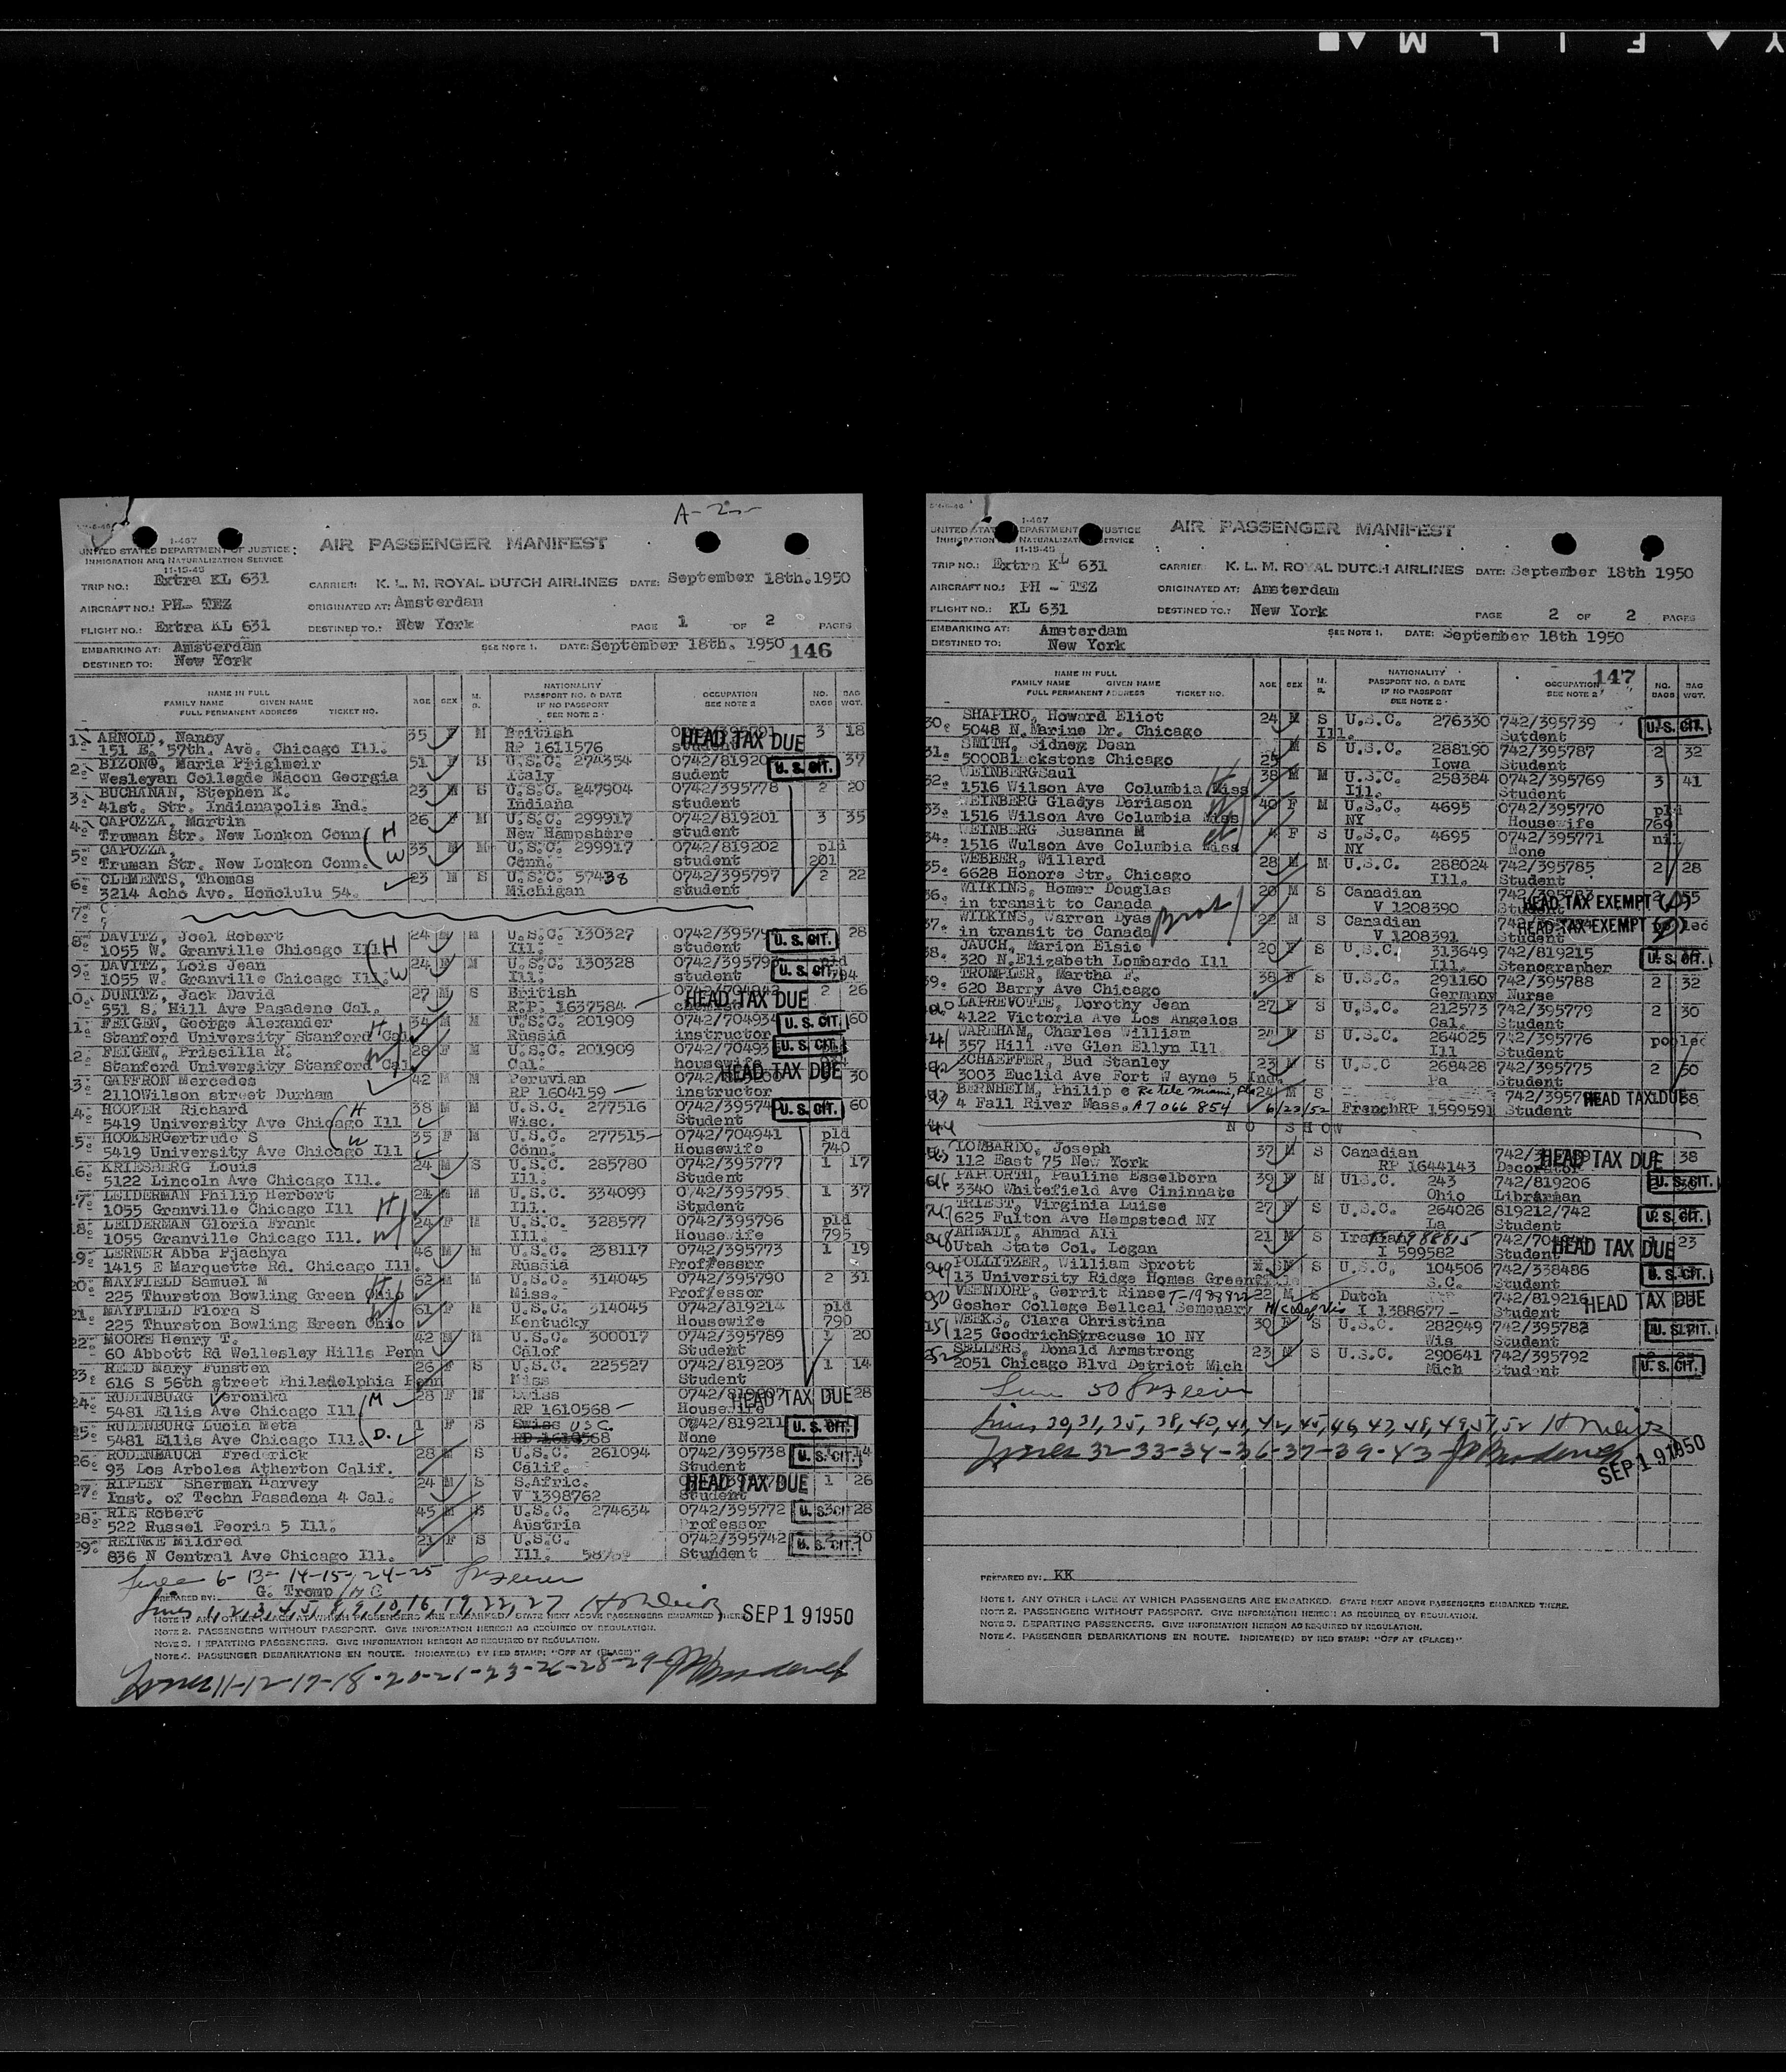 Y ▲ F I L M ▲■
A-2
I-467
UNITED STATES DEPARTMENT OF JUSTICE
IMMIGRATION AND NATURALIZATION SERVICE
11-15-45
AIR PASSENGER MANIFEST
TRIP NO.: Extra KL 631 CARRIER: K. L. M. ROYAL DUTCH AIRLINES DATE: September 18th. 1950
AIRCRAFT NO.: PH- TEZ ORIGINATED AT: Amsterdam
FLIGHT NO.: Extra KL 631 DESTINED TO.: New York PAGE 1 OF 2 PAGES
EMBARKING AT: Amsterdam SEE NOTE 1. DATE: September 18th. 1950 146
DESTINED TO: New York
NAME IN FULL FAMILY NAME GIVEN NAME FULL PERMANENT ADDRESS TICKET NO. AGE SEX M. S. NATIONALITY PASSPORT NO. & DATE IF NO PASSPORT SEE NOTE 2 OCCUPATION SEE NOTE 2 NO. BAGS BAG WGT.
1. ARNOLD, Nancy 35 F M British HEAD TAX DUE 3 18
151 E. 57th. Ave. Chicago Ill. RP 1611576
2. BIZONE, Maria 51 F S U.S.C. 274354 0742/81920 U.S. CIT. 37
Wesleyan Collegde Macon Georgia Italy sudent
3. BUCHANAN, Stephen K. 23 M S U.S.C. 247904 0742/395778 2 20
41st. Str. Indianapolis Ind. Indiana student
4. CAPOZZA, Martin 26 F M U.S.C. 299917 0742/819201 3 35
Truman Str. New Lonkon Conn H New Hampshere student
5. CAPOZZA, 33 M M U.S.C. 299917 0742/819202 pld
Truman Str. New Lonkon Conn. W Conn. student 201
6. CLEMENTS, Thomas 23 M S U.S.C. 57438 0742/395797 2 22
3214 Acho Ave. Honolulu 54. Michigan student
7.
8. DAVITZ, Joel Robert 24 M M U.S.C. 130327 U.S. CIT. 28
1055 W. Granville Chicago Ill H Ill. student
9. DAVITZ, Lois Jean 24 F M U.S.C. 130328 U.S. CIT.
1055 W. Granville Chicago Ill. W Ill. student 794
10. DUNITZ, Jack David 27 M S British HEAD TAX DUE 2 26
551 S. Hill Ave Pasadene Cal. R.P. 1637584
11. FEIGEN, George Alexander 34 M M U.S.C. 201909 0742/704934 U.S. CIT. 60
Stanford University Stanford Cal H Russia instructor
12. FEIGEN, Priscilla R. 28 F M U.S.C. 201909 0742/70493 U.S. CIT.
Stanford University Stanford Cal W Cal. housewife
13. GAFFRON Mercedes 42 M Peruvian HEAD TAX DUE 30
2110Wilson street Durham RP 1604159 instructor
14. HOOKER Richard 38 M M U.S.C. 277516 U.S. CIT. 60
5419 University Ave Chicago Ill H Wisc. Student
15. HOOKERGertrude S 35 F M U.S.C. 277515 0742/704941 pld
5419 University Ave Chicago Ill W Conn. Housewife 740
16. KRIESBERG Louis 24 M S U.S.C. 285780 0742/395777 1 17
5122 Lincoln Ave Chicago Ill. Ill. Student
17. LEIDERMAN Philip Herbert M M U.S.C. 334099 0742/395795 1 37
1055 Granville Chicago Ill H Ill. Student
18. LEIDERMAN Gloria Frank 24 F M U.S.C. 328577 0742/395796 pld
1055 Granville Chicago Ill. W Ill. Housewife 795
19. LERNER Abba Pjachya 46 M M U.S.C. 238117 0742/395773 1 19
1415 E Marquette Rd. Chicago Ill. Russia Proffessor
20. MAYFIELD Samuel M 62 M M U.S.C. 314045 0742/395790 2 31
225 Thurston Bowling Green Ohio H Miss. Proffessor
21. MAYFIELD Flora S 61 F M U.S.C. 314045 0742/819214 pld
225 Thurston Bowling Ereen Ohio W Kentucky Housewife 790
22. MOORE Henry T. 42 M M U.S.C. 300017 0742/395789 1 20
60 Abbott Rd Wellesley Hills Penn Calof Student
23. REED Mary Funsten 26 F S U.S.C. 225527 0742/819203 1 14
616 S 56th street Philadelphia Penn Miss Student
24. RUDENBURG Veronika 28 F M Swiss HEAD TAX DUE 28
5481 Ellis Ave Chicago Ill M RP 1610568 Housewife
25. RUDENBURG Lucia Meta 1 F S Swiss USC 0742/819211 U.S. CIT.
5481 Ellis Ave Chicago Ill. D. RP 1610568 None
26. RODENBAUCH Frederick 28 M S U.S.C. 261094 0742/395738 U.S. CIT. 14
93 Los Arboles Atherton Calif. Calif. Student
27. RIPLEY Sherman Harvey 24 M S S.Afric. HEAD TAX DUE 1 26
Inst. of Techn Pasadena 4 Cal. V 1398762 Student
28. RIE Robert 45 M S U.S.C. 274634 0742/395772 U.S. CIT 28
522 Russel Peoria 5 Ill. Austria Professor
29. REINKE Mildred 21 F S U.S.C. 0742/395742 U.S. CIT. 30
836 N Central Ave Chicago Ill. Ill. Student
Lines 6-13-14-15-24-25
PREPARED BY: G. Tromp
Lines 1, 2, 3, 4, 5, 8, 9, 10, 16, 19, 22, 27
NOTE 1. ANY OTHER PLACE AT WHICH PASSENGERS ARE EMBARKED. STATE NEXT ABOVE PASSENGERS EMBARKED THERE. SEP 19 1950
NOTE 2. PASSENGERS WITHOUT PASSPORT. GIVE INFORMATION HEREON AS REQUIRED BY REGULATION.
NOTE 3. DEPARTING PASSENGERS. GIVE INFORMATION HEREON AS REQUIRED BY REGULATION.
NOTE 4. PASSENGER DEBARKATIONS EN ROUTE. INDICATE(D) BY RED STAMP: "OFF AT (PLACE)"
Lines 11-12-17-18-20-21-23-26-28-29
I-467
UNITED STATES DEPARTMENT OF JUSTICE
IMMIGRATION AND NATURALIZATION SERVICE
11-15-45
AIR PASSENGER MANIFEST
TRIP NO.: Extra KL 631 CARRIER K. L. M. ROYAL DUTCH AIRLINES DATE: September 18th 1950
AIRCRAFT NO.: PH - TEZ ORIGINATED AT: Amsterdam
FLIGHT NO.: KL 631 DESTINED TO.: New York PAGE 2 OF 2 PAGES
EMBARKING AT: Amsterdam SEE NOTE 1. DATE: September 18th 1950
DESTINED TO: New York
147
NAME IN FULL FAMILY NAME GIVEN NAME FULL PERMANENT ADDRESS TICKET NO. AGE SEX M. S. NATIONALITY PASSPORT NO. & DATE IF NO PASSPORT SEE NOTE 2 OCCUPATION SEE NOTE 2 NO. BAGS BAG WGT.
30. SHAPIRO, Howard Eliot 24 M S U.S.C. 276330 742/395739 U.S. CIT.
5048 N.Marine Dr. Chicago Ill. Sutdent
31. SMITH, Sidney Dean M S U.S.C. 288190 742/395787 2 32
5000Blackstone Chicago Iowa Student
32. WEINBERGSaul 38 M M U.S.C. 258384 0742/395769 3 41
1516 Wilson Ave Columbia Miss H Ill. Student
33. WEINBERG Gladys Doriason 40 F M U.S.C. 4695 0742/395770 pld
1516 Wilson Ave Columbia Miss W NY Housewife 769
34. WEINBERG Susanna M 4 F S U.S.C. 4695 0742/395771 nil
1516 Wulson Ave Columbia Miss NY None
35. WEBBER, Willard 28 M M U.S.C. 288024 742/395785 2 28
6628 Honore Str. Chicago Ill. Student
36. WILKINS, Homer Douglas 20 M S Canadian HEAD TAX EXEMPT
in transit to Canada V 1208390 Student
37. WILKINS, Warren Dyas Brot 22 M S Canadian HEAD TAX EXEMPT
in transit to Canada V 1208391 Student
38. JAUCH, Marion Elsie 20 F S U.S.C. 313649 742/819215 U.S. CIT.
320 N.Elizabeth Lombardo Ill Ill. Stenographer
39. TROMPLER, Martha F. 38 F S U.S.C. 291160 742/395788 2 32
620 Barry Ave Chicago Germany Nurse
40 LAPREVOTTE, Dorothy Jean 27 F S U.S.C. 212573 742/395779 2 30
4122 Victoria Ave Los Angelos Cal. Student
41 WAREHAM, Charles William 24 M S U.S.C. 264025 742/395776 pooled
357 Hill Ave Glen Ellyn Ill Ill Student
42 SCHAEFFER, Bud Stanley 23 M S U.S.C 268428 742/395775 2 50
3003 Euclid Ave Fort W ayne 5 Ind. Pa Student
43 BERNHEIM, Philip e Miami, Fla 24 M S HEAD TAX DUE 38
4 Fall River Mass. A7 066 854 6/23/52 FrenchRP 1599591 Student
44 NO SHOW
45 LOMBARDO, Joseph 37 M S Canadian HEAD TAX DUE 38
112 East 75 New York RP 1644143 Decorator
46 PAPWORTH, Pauline Esselborn 39 F M UlS.C. 243 742/819206 U.S. CIT.
3340 Whitefield Ave Cininnate Ohio Librarian
47 TRIEST, Virginia Luise 27 F S U.S.C. 264026 819212/742 U.S. CIT.
625 Fulton Ave Hempstead NY La Student
48 AHMADI, Ahmad Ali 21 M S Iranian HEAD TAX DUE 23
Utah State Col. Logan I 599582 Student
49 POLLITZER, William Sprott M S U.S.C. 104506 742/338486 U.S. CIT.
13 University Ridge Homes Greenville S.C. Student
50 VEENDORP, Gerrit Rinse T-1983822 22 M S Dutch 742/819216 HEAD TAX DUE
Gosher College Bellcal Semenary I 1388677 Student
51 WEEKS, Clara Christina 30 F S U.S.C. 282949 742/395782 U.S. CIT.
125 GoodrichSyracuse 10 NY Wis Student
52 SELLERS, Donald Armstrong 23 M S U.S.C. 290641 742/395792 U.S. CIT.
2051 Chicago Blvd Detriot Mich Mich Student
Line 50
Lines 30, 31, 35, 38, 40, 41, 42, 45, 46, 47, 48, 49, 51, 52
Lines 32-33-34-36-37-39-43
SEP 19 1950
PREPARED BY: KK
NOTE 1. ANY OTHER PLACE AT WHICH PASSENGERS ARE EMBARKED. STATE NEXT ABOVE PASSENGERS EMBARKED THERE.
NOTE 2. PASSENGERS WITHOUT PASSPORT. GIVE INFORMATION HEREON AS REQUIRED BY REGULATION.
NOTE 3. DEPARTING PASSENGERS. GIVE INFORMATION HEREON AS REQUIRED BY REGULATION.
NOTE 4. PASSENGER DEBARKATIONS EN ROUTE. INDICATE(D) BY RED STAMP: "OFF AT (PLACE)"